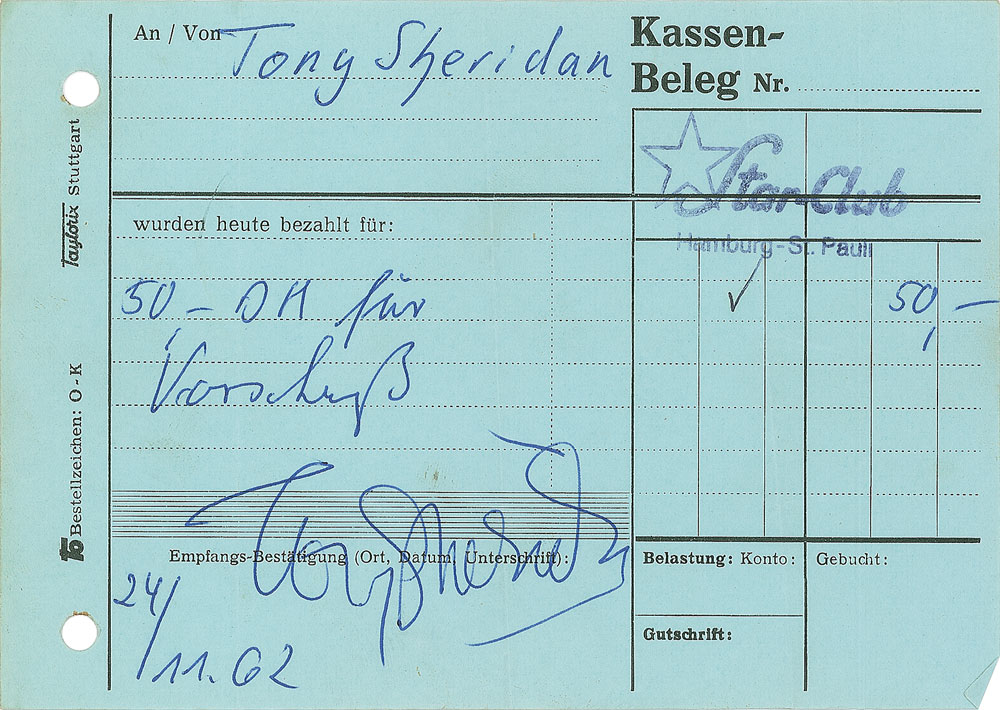 An / Von Tony Sheridan
Kassen-
Beleg Nr.
Star-Club
Hamburg-St. Pauli
wurden heute bezahlt für:
50,- DM für
Vorschuß
50,-
Tony Sheridan
Empfangs-Bestätigung (Ort, Datum, Unterschrift):
24/
11.62
Belastung: Konto:
Gebucht:
Gutschrift:
Taylorix Stuttgart
Bestellzeichen: O-K